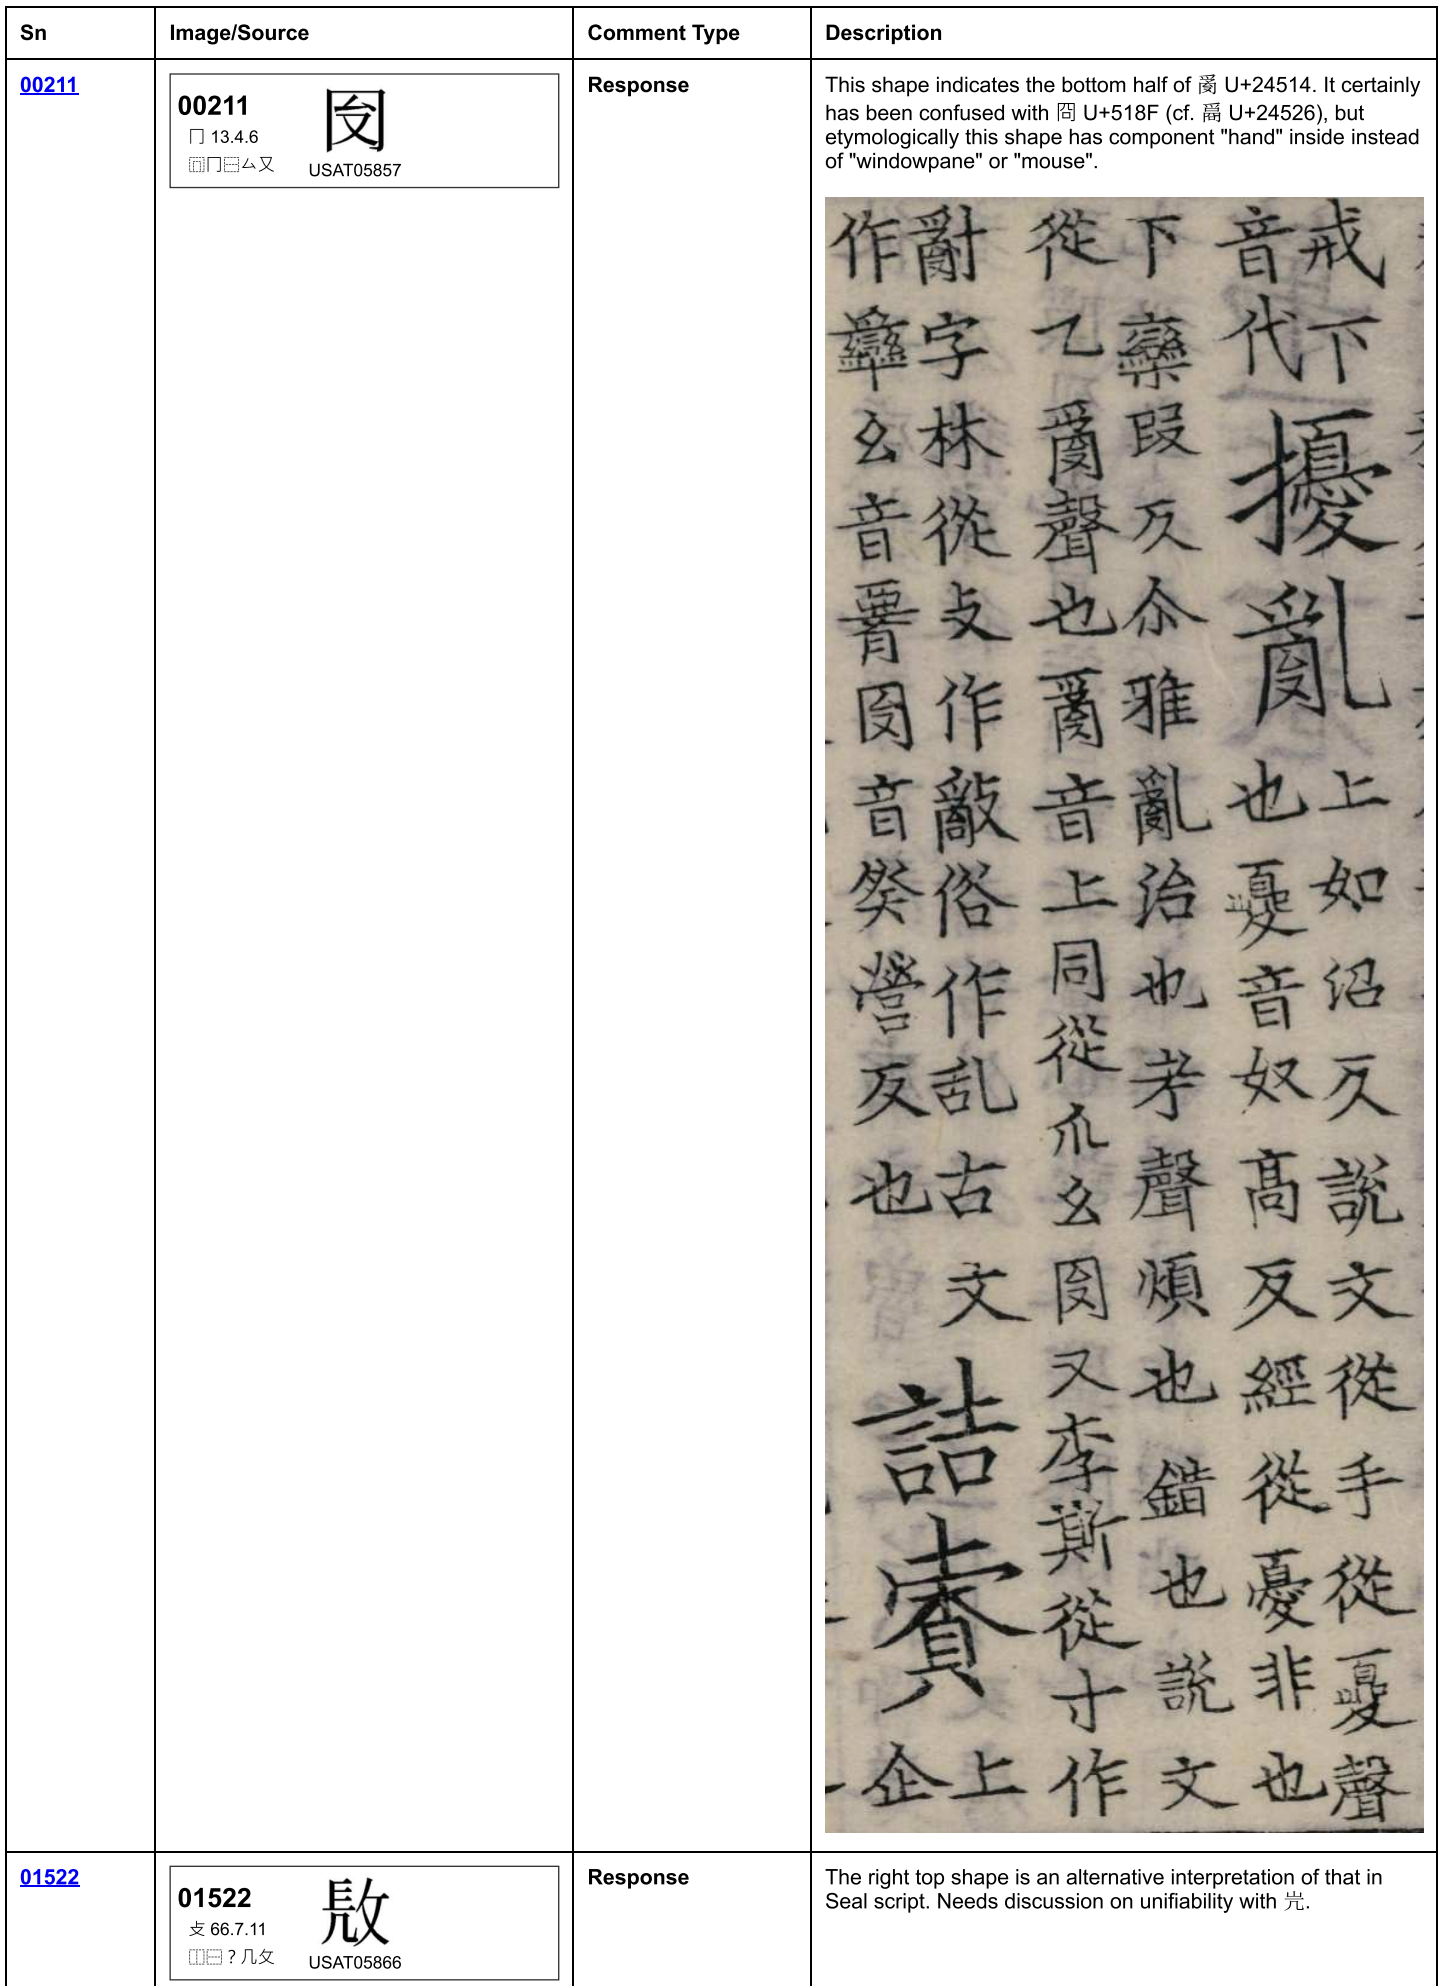 Sn	Image/Source	Comment Type	Description
00211
00211
冂 13.4.6
⿵冂⿱厶又
USAT05857
Response
This shape indicates the bottom half of 𤔔 U+24514. It certainly
has been confused with 冏 U+518F (cf. 𤔦 U+24526), but
etymologically this shape has component "hand" inside instead
of "windowpane" or "mouse".
戒下
音代
擾亂
上如沼反說文從手從聲
也音奴高反經從憂非也
下段反尒雅亂治也聲煩也錯也說文
從乙𤔔聲也𤔔音上同從爪幺又李斯從寸作
字林從攴作俗作乱古文
作幺音音癸營反也
詰責
上
企
01522
01522
攴 66.7.11
⿰⿱？几攵
USAT05866
Response
The right top shape is an alternative interpretation of that in
Seal script. Needs discussion on unifiability with